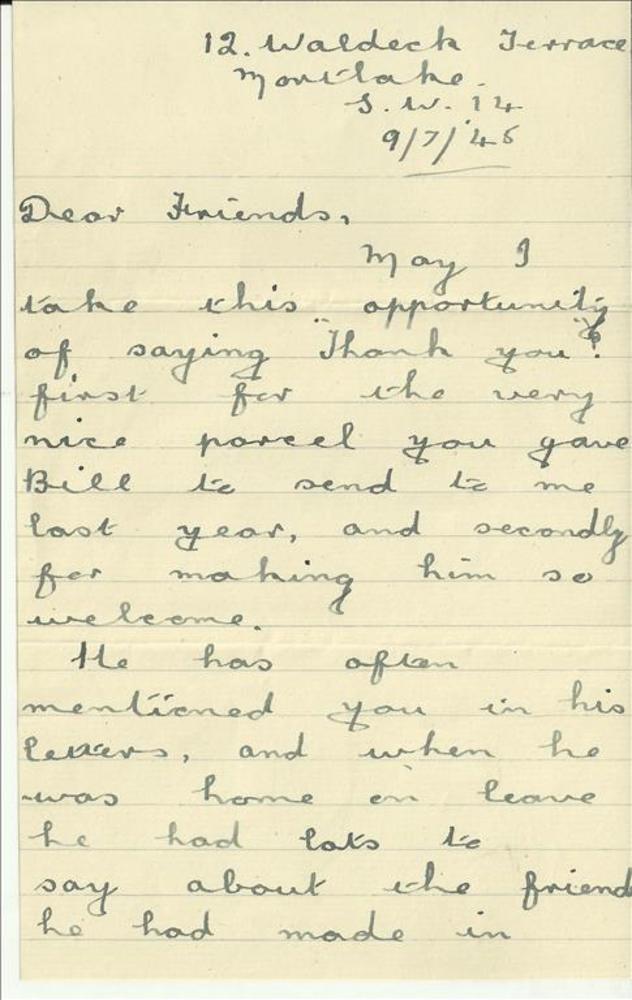 12. Waldeck Terrace
Mortlake.
S.W.14
9/7/45
Dear Friends,
May I
take this opportunity
of saying "Thank you",
first for the very
nice parcel you gave
Bill to send to me
last year, and secondly
for making him so
welcome.
He has often
mentioned you in his
letters, and when he
was home on leave
he had lots to
say about the friend
he had made in